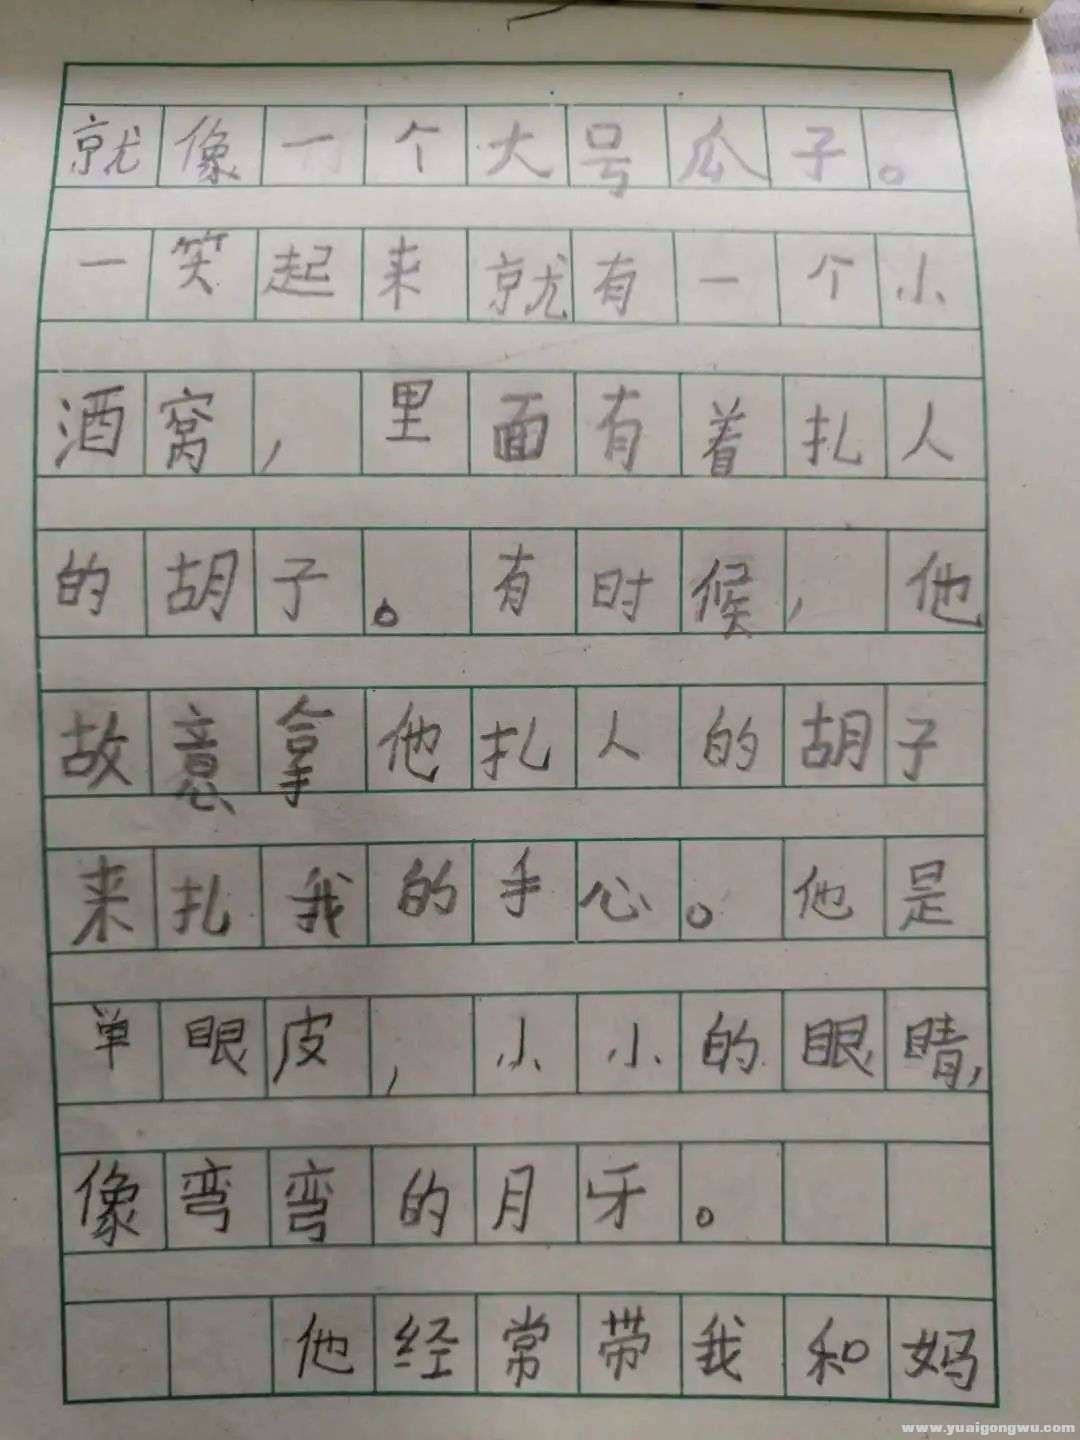 就像一个大号瓜子。
一笑起来就有一个小
酒窝，里面有着扎人
的胡子。有时候，他
故意拿他扎人的胡子
来扎我的手心。他是
单眼皮，小小的眼睛，
像弯弯的月牙。
他经常带我和妈
www.yuaigongwu.com